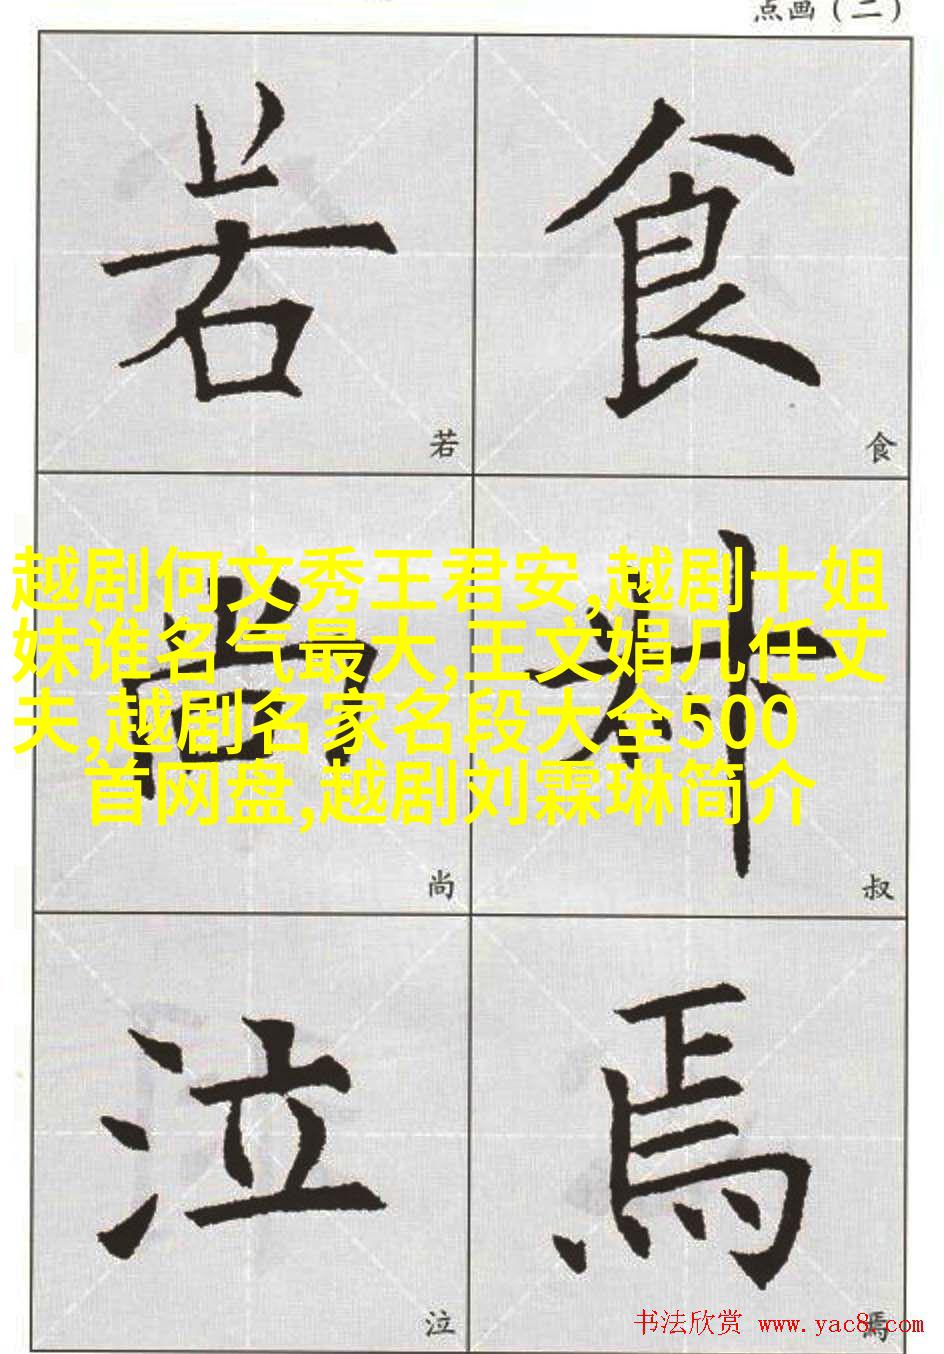 点画（二）
若 食
若 食
越剧何文秀王君安,越剧十姐
妹谁名气最大,王文娟几任丈
夫,越剧名家名段大全500
首网盘,越剧刘霖琳简介
尚 叔
尚 叔
泣 焉
泣 焉
书法欣赏 www.yac8.com